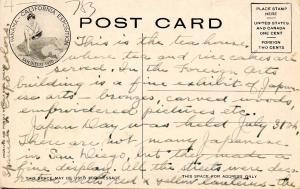 783
PANAMA-CALIFORNIA EXPOSITION
SAN DIEGO 1915
POST CARD
PLACE STAMP
HERE
UNITED STATES
AND CANADA
ONE CENT
FOREIGN
TWO CENTS
This is the tea house,
where tea and rice cakes are
served. In the Foreign Arts
building is a fine exhibit of Japan
ese arts, bronzes, carved woods,
embroidered pictures etc.
Japan Day was here July 31st
There are not many Japanese
in San Diego, but they made a
fine display all the streets are
red &
THIS SPACE MAY BE USED FOR MESSAGE
THIS SPACE FOR ADDRESS ONLY